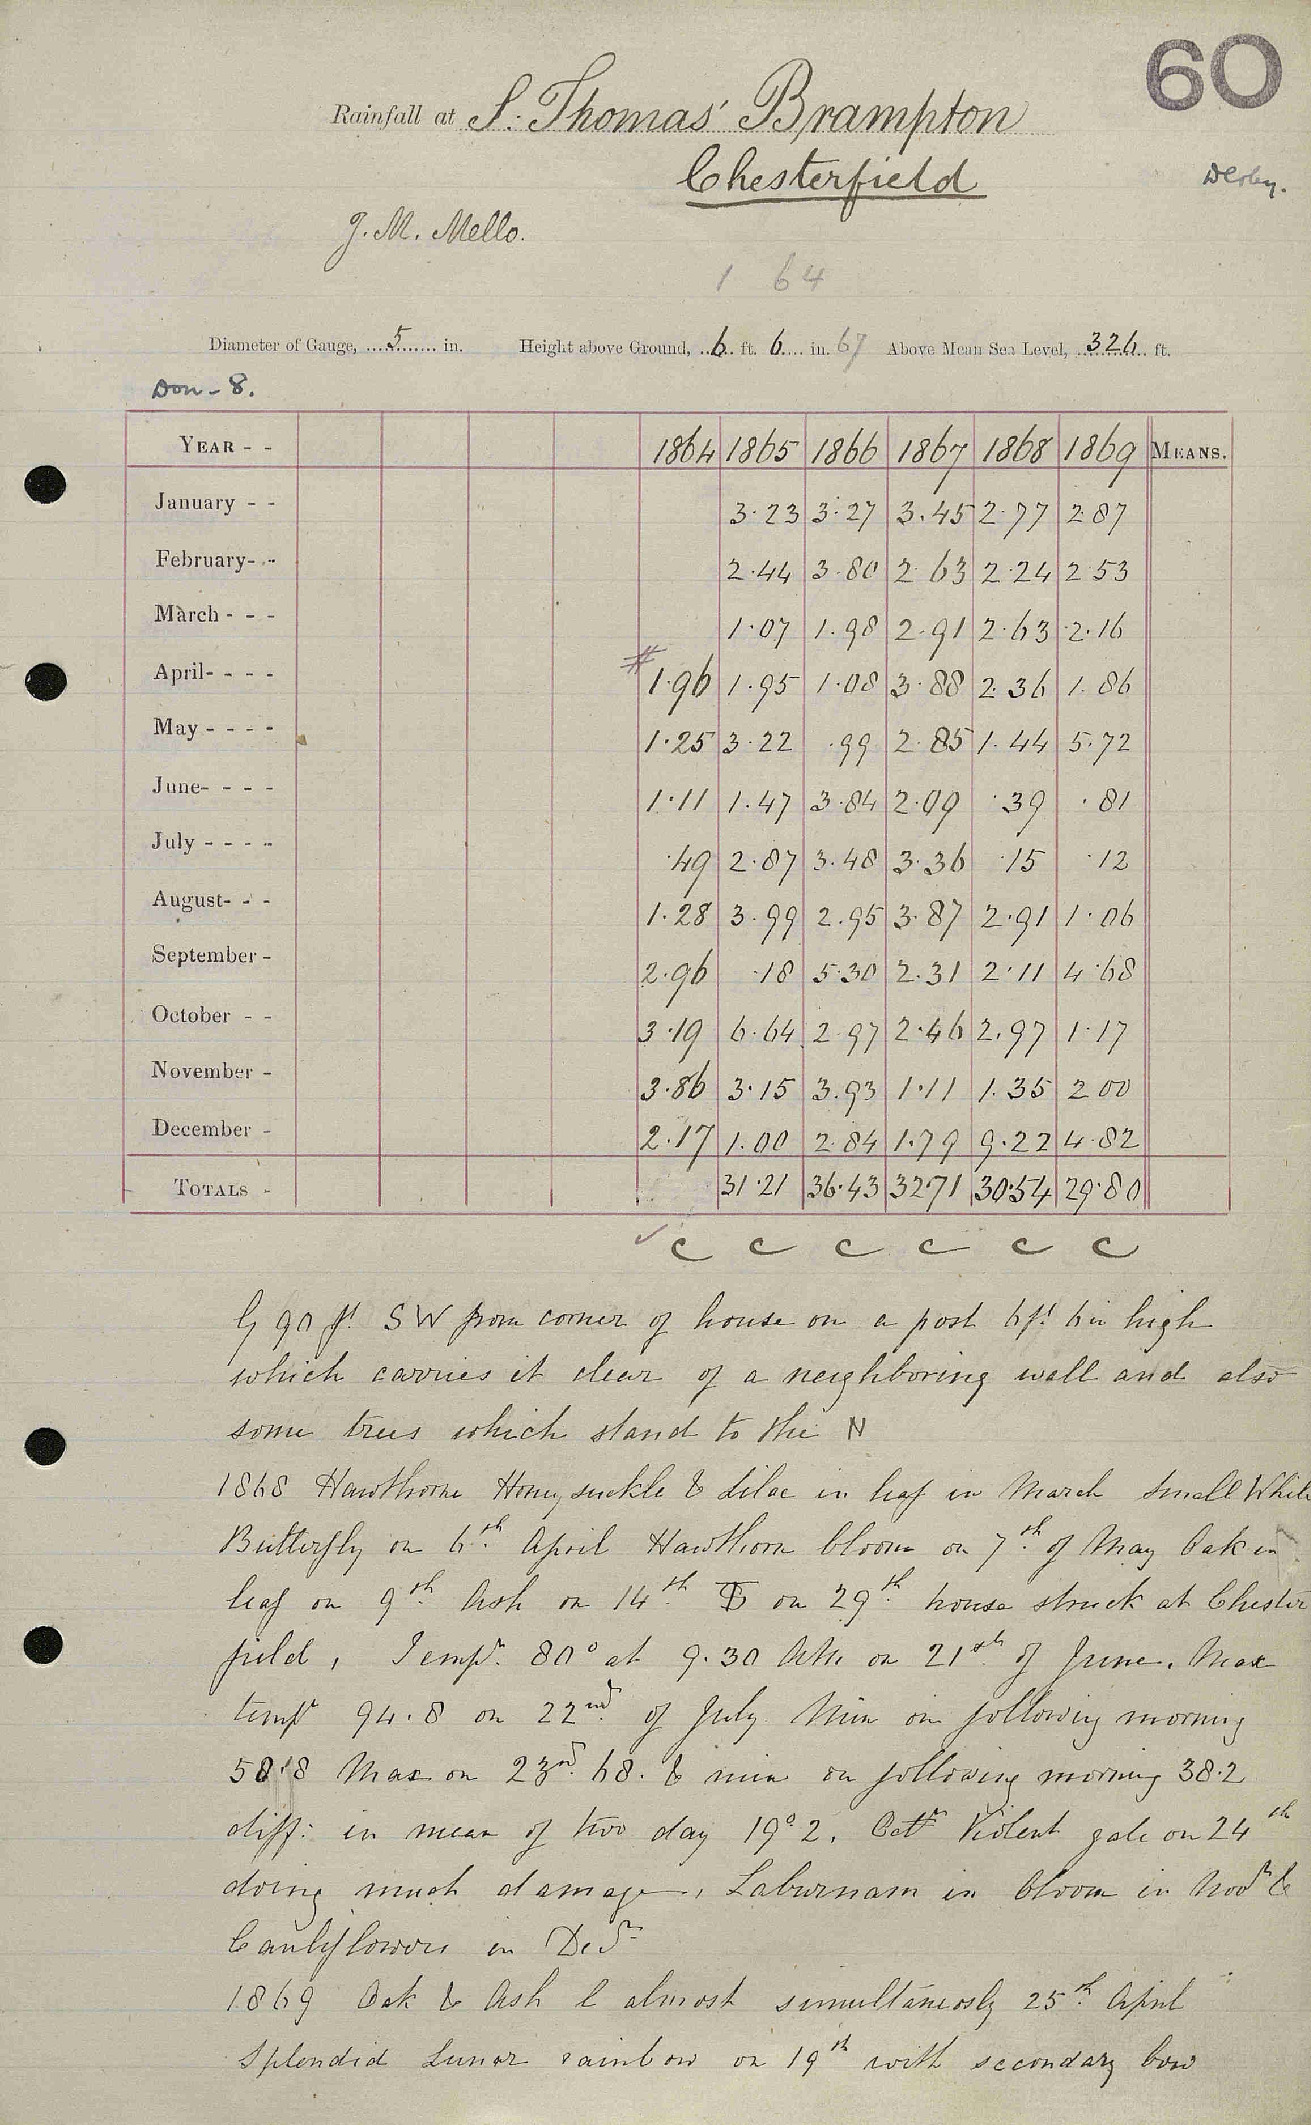 60
Rainfall at S. Thomas' Brampton
Chesterfield
Derby.
J. M. Mello.
1 64
Diameter of Gauge, 5 in. Height above Ground, 6 ft. 6 in. 67 Above Mean Sea Level, 326 ft.
Don - 8.
YEAR - - 1864 1865 1866 1867 1868 1869 MEANS.
January - - 3.23 3.27 3.45 2.77 2.87
February - - 2.44 3.80 2.63 2.24 2.53
March - - - 1.07 1.98 2.91 2.63 2.16
April - - - - # 1.96 1.95 1.08 3.88 2.36 1.86
May - - - - 1.25 3.22 .99 2.85 1.44 5.72
June - - - - 1.11 1.47 3.84 2.09 .39 .81
July - - - - .49 2.87 3.48 3.36 .15 .12
August - - - 1.28 3.99 2.95 3.87 2.91 1.06
September - 2.96 .18 5.30 2.31 2.11 4.68
October - - 3.19 6.64 2.97 2.46 2.97 1.17
November - 3.86 3.15 3.93 1.11 1.35 2.00
December - 2.17 1.00 2.84 1.79 9.22 4.82
TOTALS - 31.21 36.43 32.71 30.54 29.80
✓ C C C C C C
G 90 ft. SW from corner of house on a post 6 ft. 6 in high
which carries it clear of a neighboring wall and also
some trees which stand to the N
1868 Hawthorne Honeysuckle & Lilac in leaf in March Small White
Butterfly on 6th April Hawthorn bloom on 7th of May Oak in
leaf on 9th Ash on 14th on 29th house struck at Chester
field, Tempr. 80° at 9.30 AM on 21st of June. Max
tempr 94.8 on 22nd of July Min on following morning
50.8 Max on 23rd 68. & min on following morning 38.2
diff: in mean of two day 19°2. Octr Violent gale on 24th
doing much damage, Laburnam in bloom in Novr &
Cauliflowers in Decr
1869 Oak & Ash l almost simultaneosly 25th April
Splendid Lunar rainbow on 19th with secondary bow